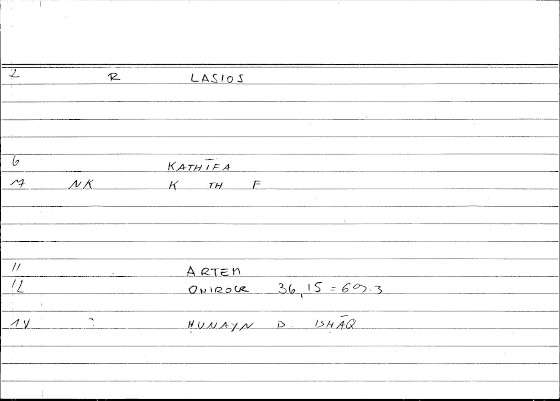 2 R LASIOS
6 KATHĪFA
NK K TH F
11 ARTEM
12 ONIROCR 36,15 = 69.3
14 : ḤUNAYN B. ISḤĀQ